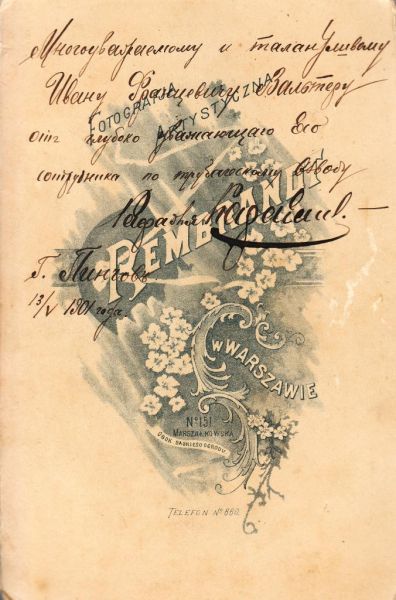 Многоуважаемому и талантливому
Ивану Францевичу Вальтеру
отъ глубоко уважающаго Его
сотрудника по трубаческому взводу
Г. Пинчовъ
13/V 1901 года.
FOTOGRAFJA
ARTYSTYCZNA
REMBRANDT
W WARSZAWIE
No 151
MARSZAŁKOWSKA
OBOK SASKIEGO OGRODU
TELEFON No 660.